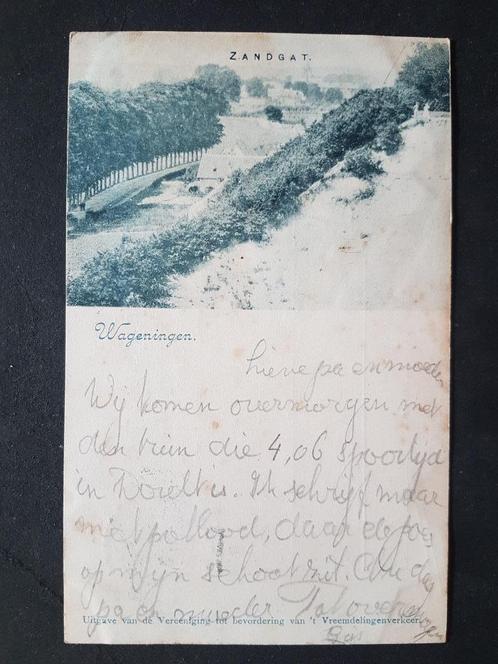 ZANDGAT.
Wageningen.
Lieve pa en moeder
Wij komen overmorgen met
den trein die 4,06 spoortijd
in Dordt is. Ik schrijf maar
met potlood, daar de poes
op mijn schoot zit. dag
pa en moeder. Tot overmorgen
Uitgave van de Vereeniging tot bevordering van 't Vreemdelingenverkeer.